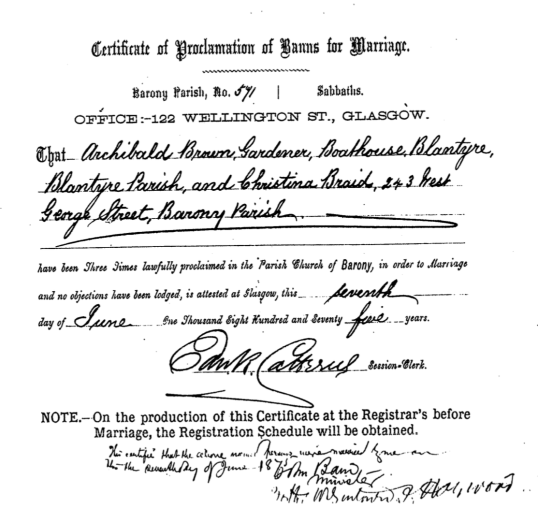 Certificate of Proclamation of Banns for Marriage.
Barony Parish, No. 571 | Sabbaths.
OFFICE:-122 WELLINGTON ST., GLASGOW.
That Archibald Brown, Gardener, Boathouse, Blantyre,
Blantyre Parish, and Christina Braid, 243 West
George Street, Barony Parish
have been Three Times lawfully proclaimed in the Parish Church of Barony, in order to Marriage
and no objections have been lodged, is attested at Glasgow, this seventh
day of June One Thousand Eight Hundred and Seventy five years.
Session-Clerk.
NOTE.—On the production of this Certificate at the Registrar's before
Marriage, the Registration Schedule will be obtained.
that the above persons were married by me
this the seventh day of June John
Minister